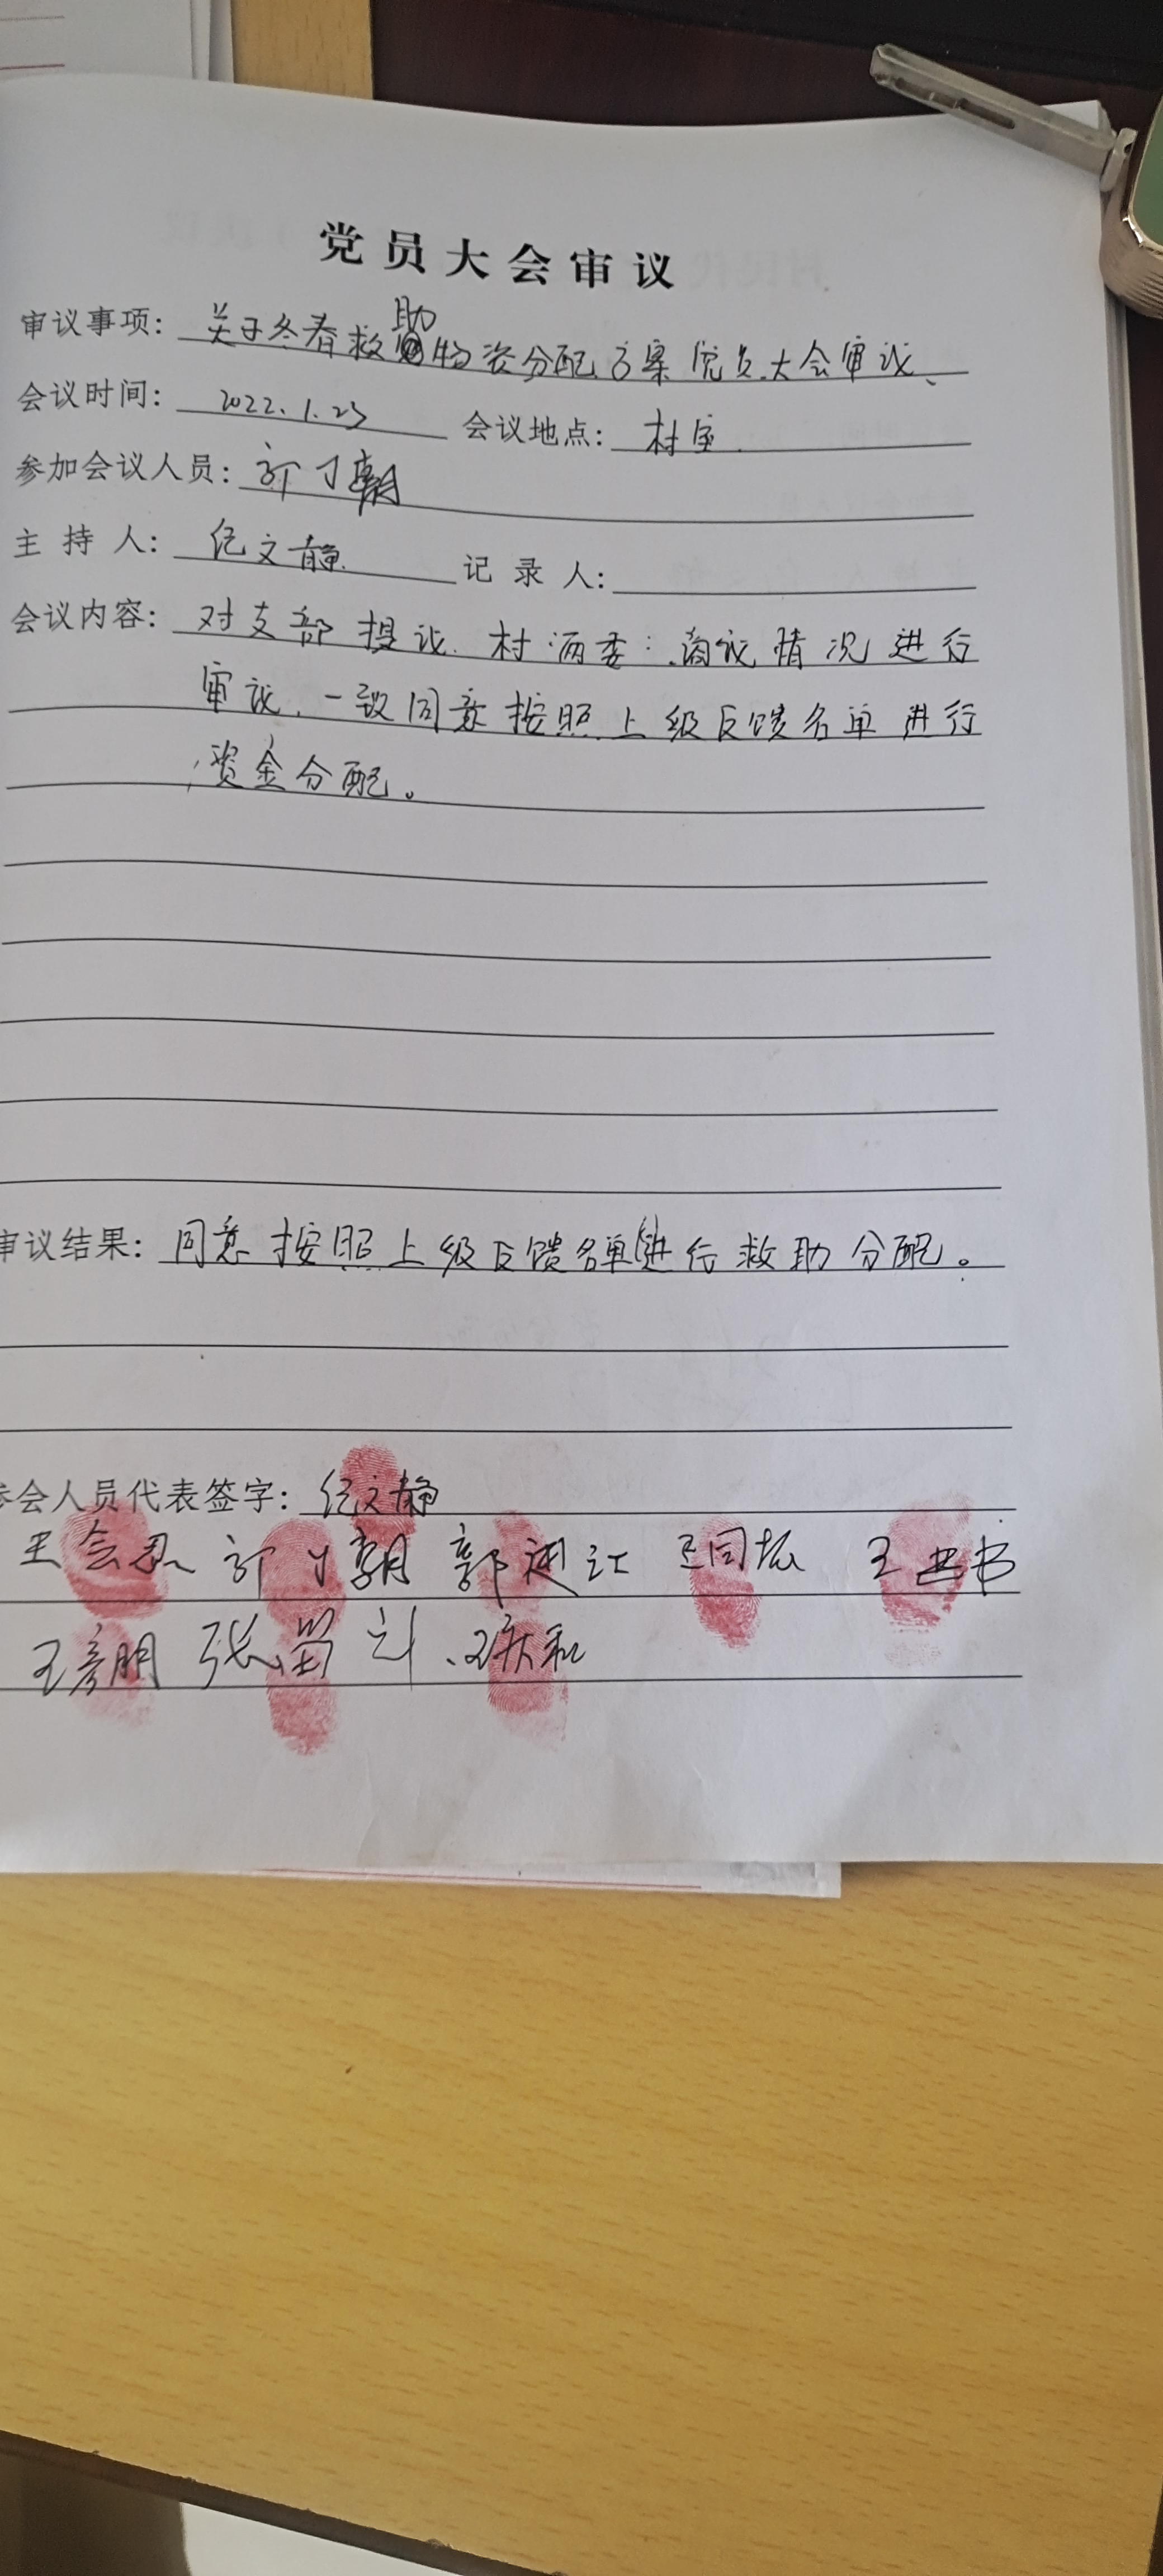 党员大会审议
审议事项: 关于冬春救助物资分配方案党员大会审议.
会议时间: 2022.1.23 会议地点: 村室.
参加会议人员:
主持人: 纪文静 记录人:
会议内容: 对支部提议.村两委:商议情况进行
审议.一致同意按照上级反馈名单进行
资金分配。
审议结果: 同意按照上级反馈名单进行救助分配。
参会人员代表签字: 纪文静
王会恩 郭进江 王同振 王世书
王彦明 张留计 王庆和